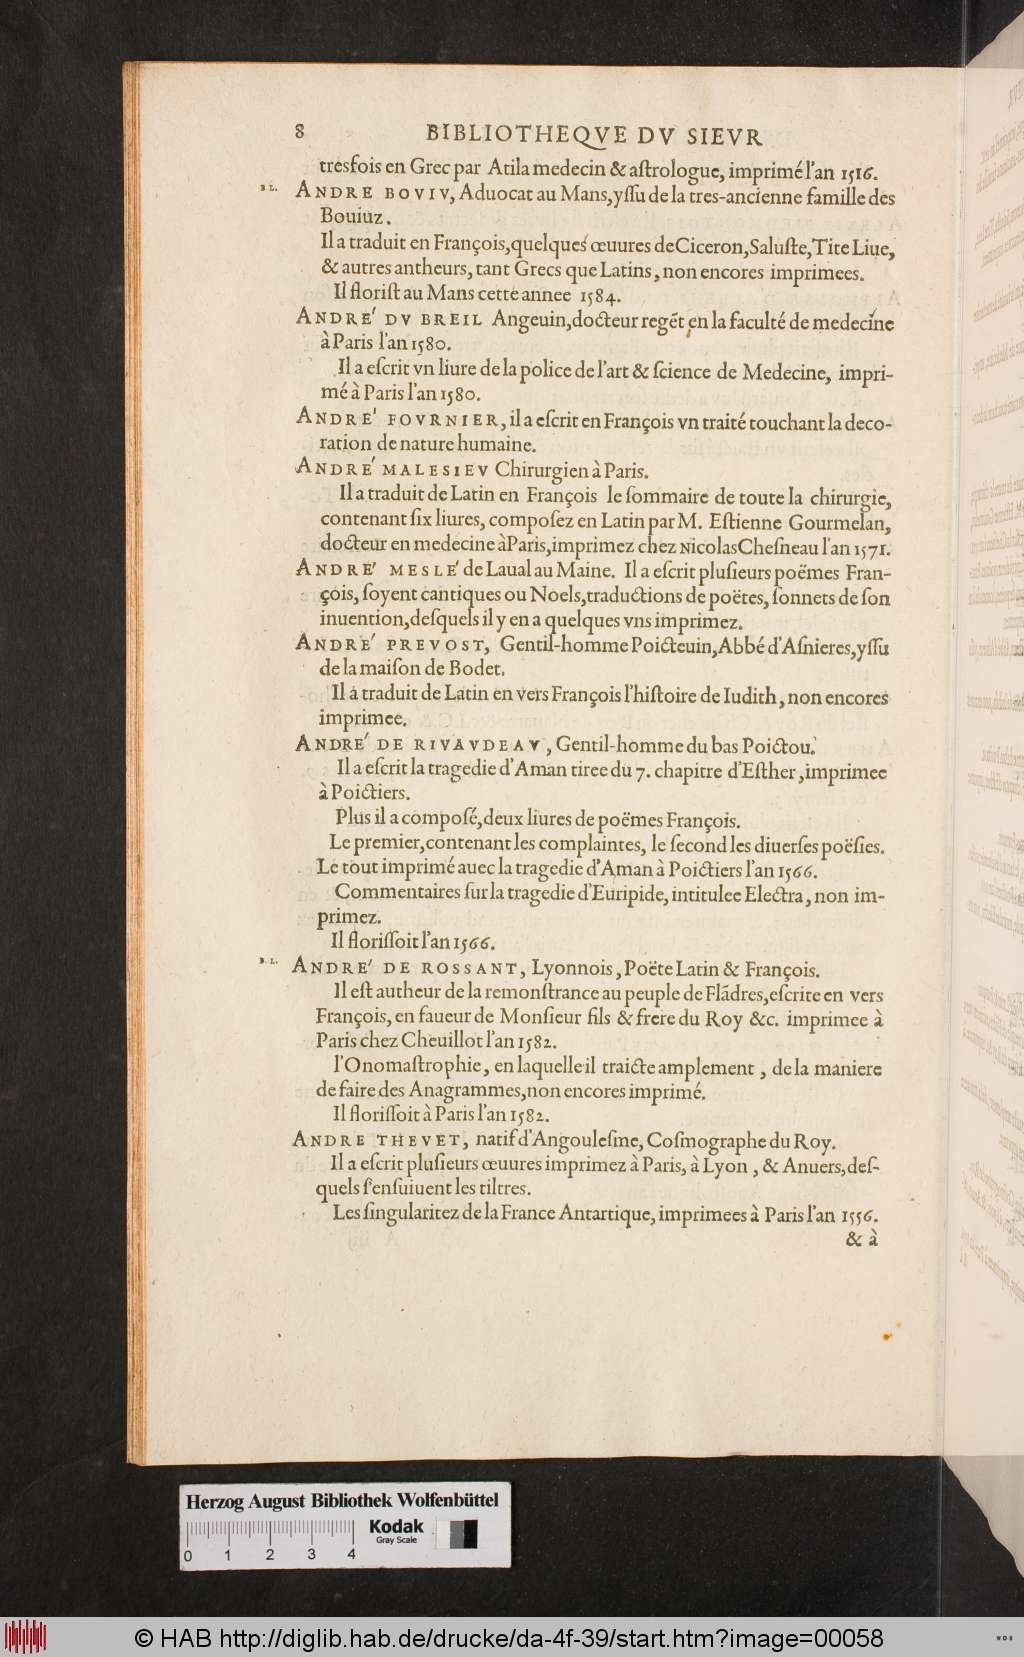 8 BIBLIOTHEQVE DV SIEVR
tresfois en Grec par Atila medecin & aſtrologue, imprimé l'an 1516.
B L. ANDRE BOVIV, Aduocat au Mans, yſſu de la tres-ancienne famille des
Bouiuz.
Il a traduit en François, quelques œuures de Ciceron, Saluſte, Tite Liue,
& autres antheurs, tant Grecs que Latins, non encores imprimees.
Il floriſt au Mans cette annee 1584.
ANDRE' DV BREIL Angeuin, docteur regēt en la faculté de medecine
à Paris l'an 1580.
Il a eſcrit vn liure de la police de l'art & ſcience de Medecine, impri-
mé à Paris l'an 1580.
ANDRE' FOVRNIER, il a eſcrit en François vn traité touchant la deco-
ration de nature humaine.
ANDRE' MALESIEV Chirurgien à Paris.
Il a traduit de Latin en François le ſommaire de toute la chirurgie,
contenant ſix liures, compoſez en Latin par M. Eſtienne Gourmelan,
docteur en medecine à Paris, imprimez chez Nicolas Cheſneau l'an 1571.
ANDRE' MESLE' de Laual au Maine. Il a eſcrit pluſieurs poëmes Fran-
çois, ſoyent cantiques ou Noels, traductions de poëtes, ſonnets de ſon
inuention, deſquels il y en a quelques vns imprimez.
ANDRE' PREVOST, Gentil-homme Poicteuin, Abbé d'Aſnieres, yſſu
de la maiſon de Bodet.
Il à traduit de Latin en vers François l'hiſtoire de Iudith, non encores
imprimee.
ANDRE' DE RIVAVDEAV, Gentil-homme du bas Poictou.
Il a eſcrit la tragedie d'Aman tiree du 7. chapitre d'Eſther, imprimee
à Poictiers.
Plus il a compoſé, deux liures de poëmes François.
Le premier, contenant les complaintes, le ſecond les diuerſes poëſies.
Le tout imprimé auec la tragedie d'Aman à Poictiers l'an 1566.
Commentaires ſur la tragedie d'Euripide, intitulee Electra, non im-
primez.
Il floriſſoit l'an 1566.
B. L. ANDRE' DE ROSSANT, Lyonnois, Poëte Latin & François.
Il eſt autheur de la remonſtrance au peuple de Flādres, eſcrite en vers
François, en faueur de Monſieur fils & frere du Roy &c. imprimee à
Paris chez Cheuillot l'an 1582.
l'Onomaſtrophie, en laquelle il traicte amplement, de la maniere
de faire des Anagrammes, non encores imprimé.
Il floriſſoit à Paris l'an 1582.
ANDRE THEVET, natif d'Angouleſme, Coſmographe du Roy.
Il a eſcrit pluſieurs œuures imprimez à Paris, à Lyon, & Anuers, deſ-
quels ſ'enſuiuent les tiltres.
Les ſingularitez de la France Antartique, imprimees à Paris l'an 1556.
& à
Herzog August Bibliothek Wolfenbüttel
Kodak
Gray Scale
0 1 2 3 4
© HAB http://diglib.hab.de/drucke/da-4f-39/start.htm?image=00058